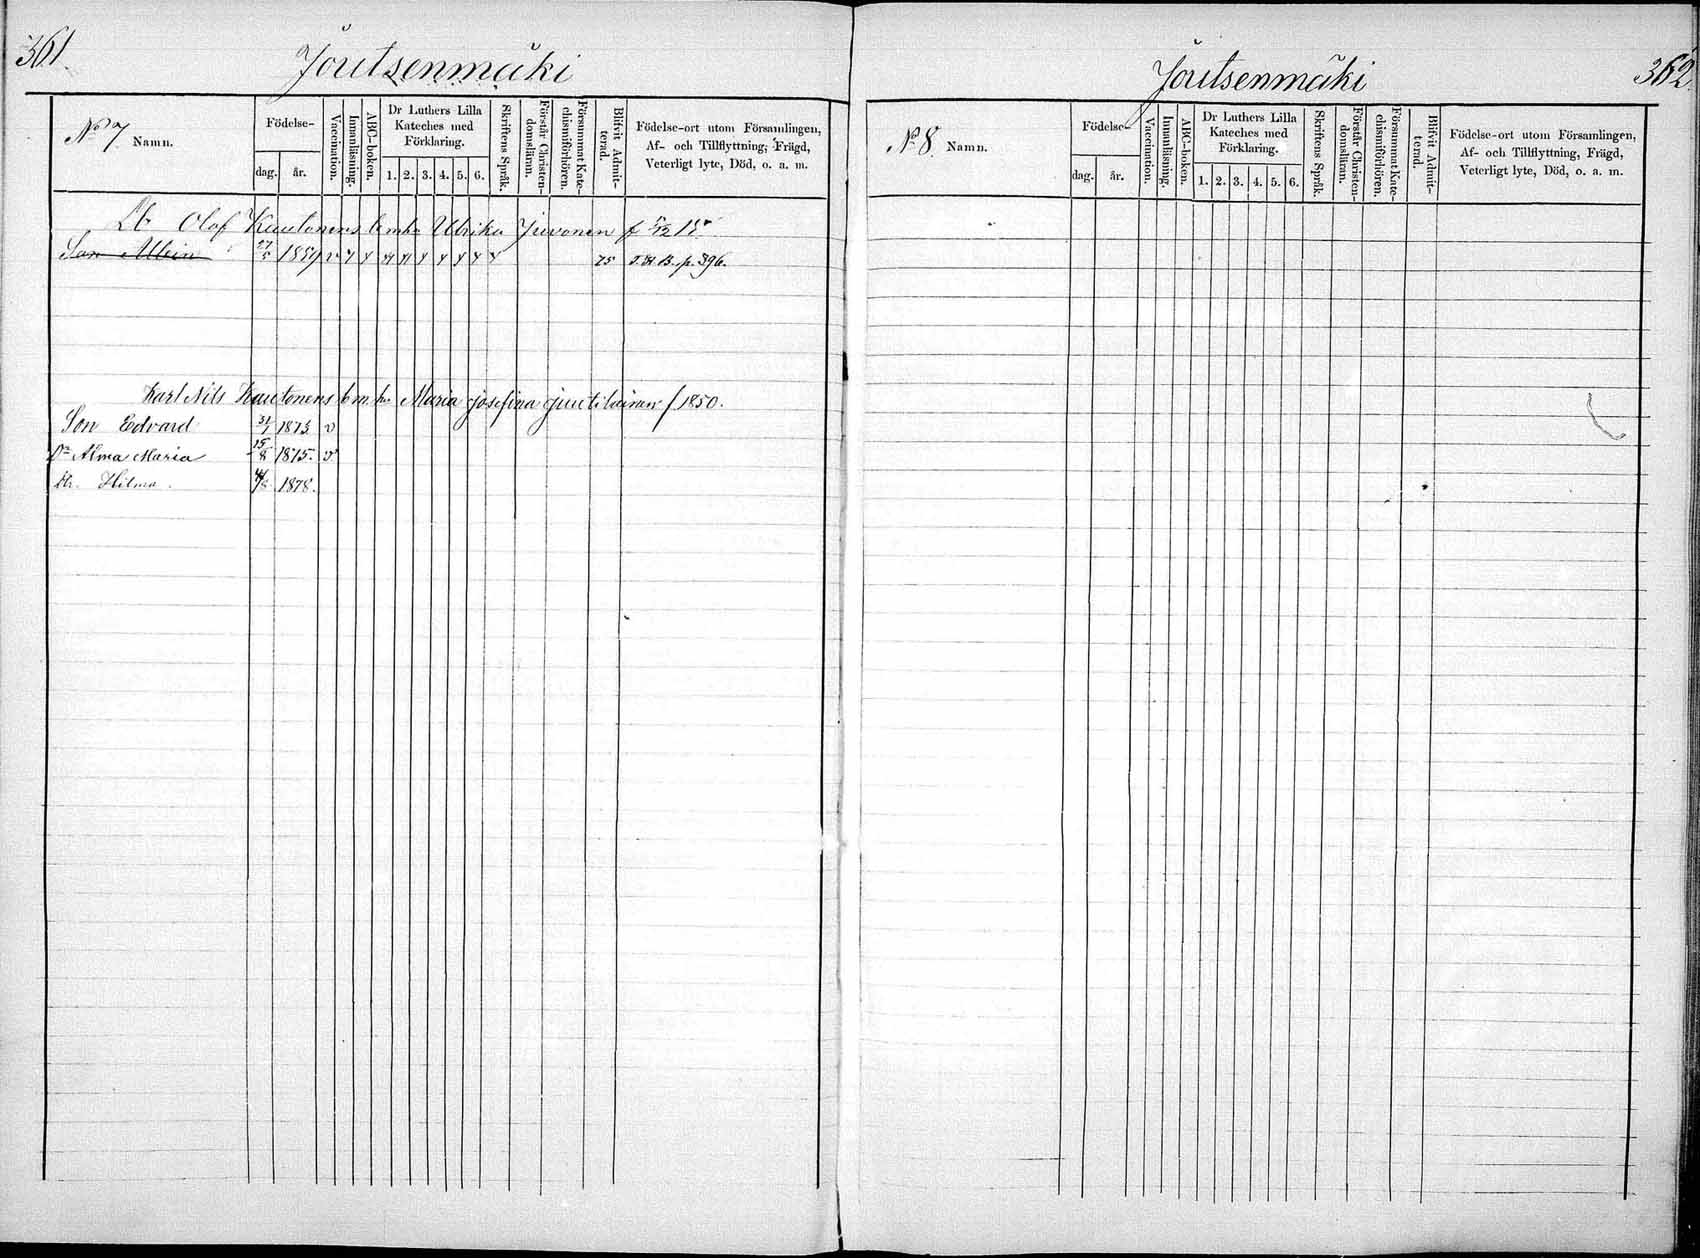 361
Joutsenmäki
No 7 Namn.
Födelse-
dag. år.
Vaccination.
Innanläsning.
ABC-boken.
Dr Luthers Lilla
Kateches med
Förklaring.
1. 2. 3. 4. 5. 6.
Skriftens Språk.
Förstår Christen-
domsläran.
Försummat Kate-
chismiförhören.
Blifvit Admit-
terad.
Födelse-ort utom Församlingen,
Af- och Tillflyttning, Frägd,
Veterligt lyte, Död, o. a. m.
Olof Kautonens Ulrika Juvonen f
Son Albin 27/5 1859 v 75 p. 396.
Karl Nils Kautonens Maria Josefina Juutilainen f 1850.
Son Edvard 31/7 1873 v
Dr Alma Maria 15/8 1875. v
Dr. Hilma. 1878.
Joutsenmäki
362
No 8. Namn.
Födelse-
dag. år.
Vaccination.
Innanläsning.
ABC-boken.
Dr Luthers Lilla
Kateches med
Förklaring.
1. 2. 3. 4. 5. 6.
Skriftens Språk.
Förstår Christen-
domsläran.
Försummat Kate-
chismiförhören.
Blifvit Admit-
terad.
Födelse-ort utom Församlingen,
Af- och Tillflyttning, Frägd,
Veterligt lyte, Död, o. a. m.